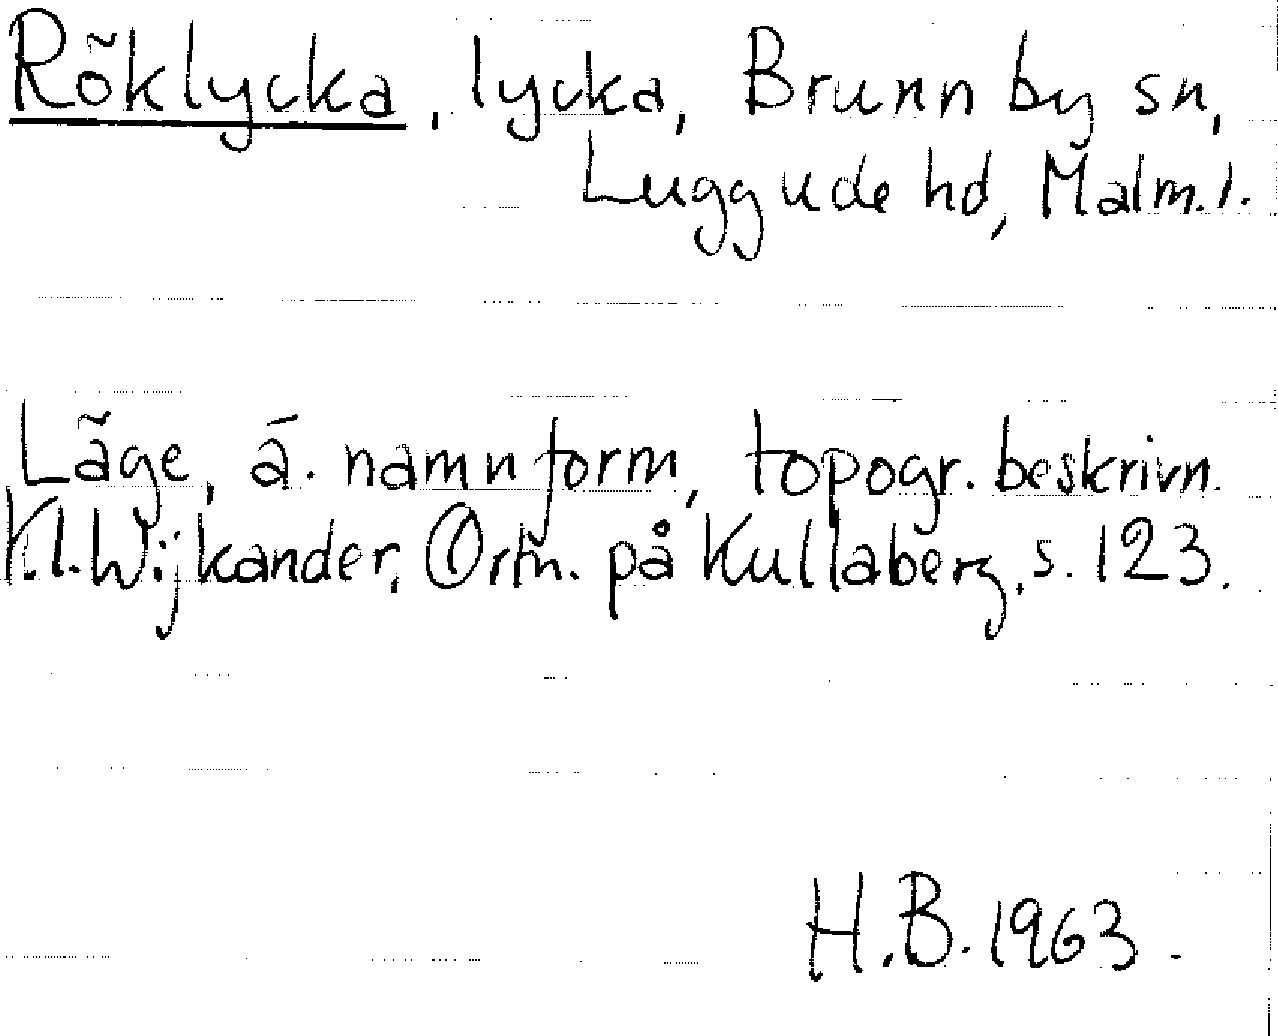 Röklycka, lycka, Brunnby sn,
Luggude hd, Malm.l.
Läge, ä. namnform, topogr. beskrivn.
K.I. Wijkander, Ortn. på Kullaberg, s. 123.
H.B. 1963.